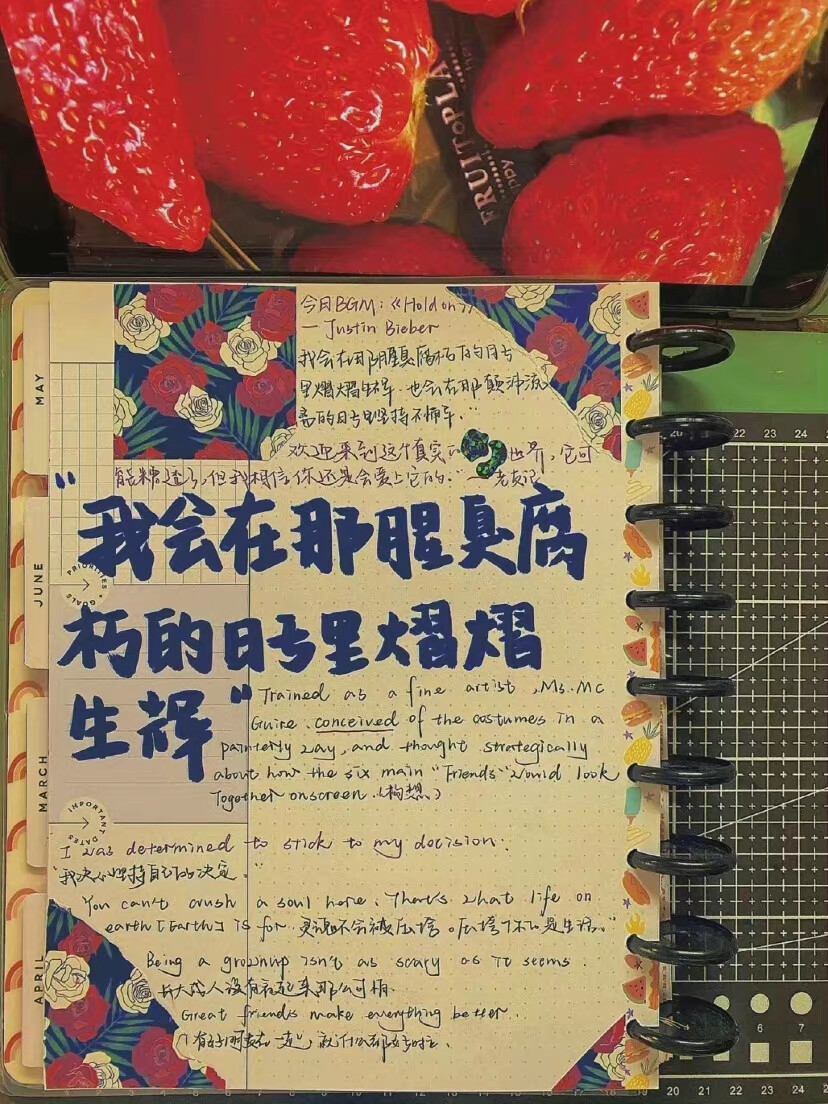 FRUITOPLA
今日BGM:《Hold on》
— Justin Bieber
我会在那腥臭腐朽的日子
里熠熠生辉.也会在那颠沛流
离的日子里坚持不懈."
欢迎来到这个真实的世界,它可
能糟透了,但我相信你还是会爱上它的."—老友记
"我会在那腥臭腐
朽的日子里熠熠
生辉"
MAY
JUNE
MARCH
APRIL
PRIORITIES + GOALS
IMPORTANT DATES
Trained as a fine artist, Ms. Mc
Guire conceived of the costumes in a
painterly way, and thought strategically
about how the six main "Friends" would look
together onscreen.(构想)
I was determined to stick to my decision.
"我决心坚持自己的决定."
You can't crush a soul here. That's what life on
earth [Earth] is for. 灵魂不会被压垮。压垮你的是生活."
Being a grownup isn't as scary as it seems.
长大成人没有看起来那么可怕.
Great friends make everything better.
有好朋友在一起,就什么都好啦.
22 23 24
20 21 22 23 24
6 7